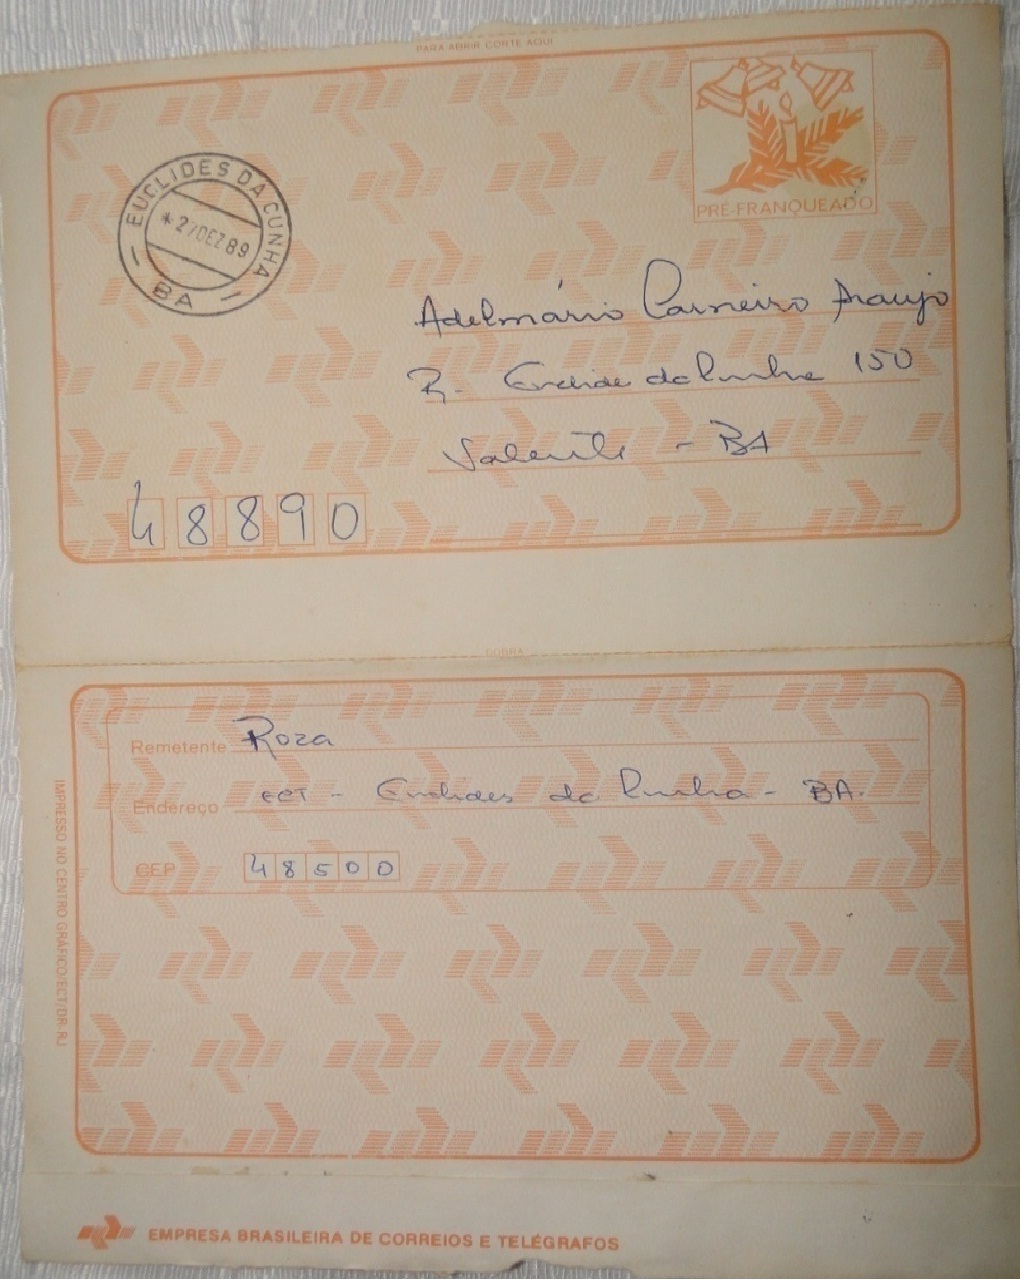 PARA ABRIR CORTE AQUI
PRÉ-FRANQUEADO
EUCLIDES DA CUNHA
BA
Adelmário Carneiro Araujo
R. Euclides da Cunha 150
Valente - BA
48890
DOBRA
Remetente Roza
Endereço ECT - Euclides da Cunha - BA.
CEP 48500
IMPRESSO NO CENTRO GRÁFICO/ECT/DR. RJ
EMPRESA BRASILEIRA DE CORREIOS E TELÉGRAFOS